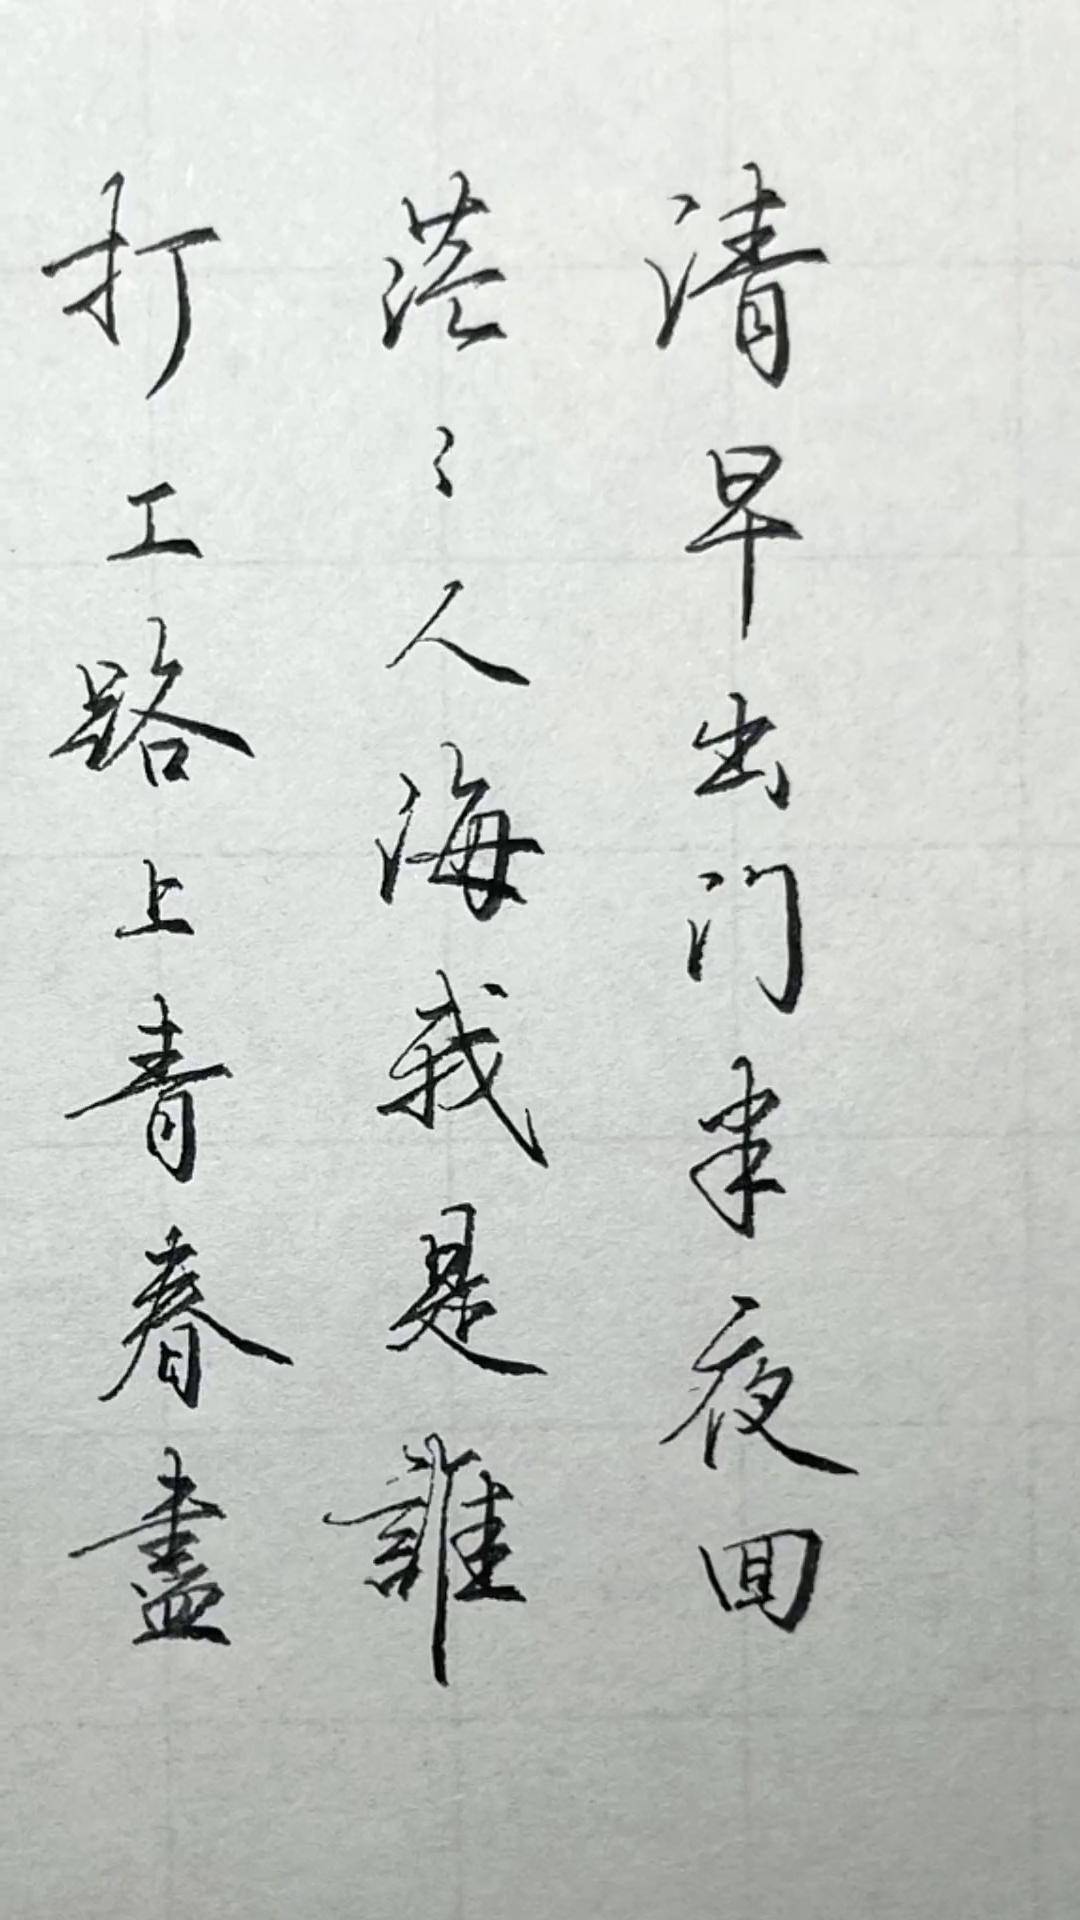 清早出门半夜回
茫〻人海我是誰
打工路上青春盡